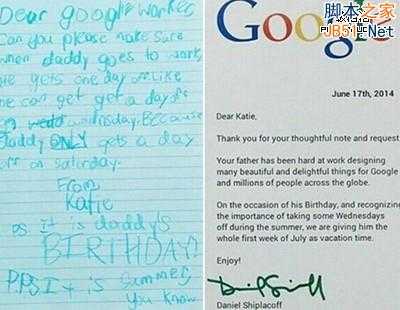 Dear google worker,
Can you please make sure
when daddy goes to work,
he gets one day off. Like
he can get get a day off
on wednesday. Because
daddy ONLY gets a day
off on saturday.
From
Katie
P.S It is daddy's
BIRTHDAY!
P.P.S It is summer,
you know
Google
脚本之家
JB51.Net
June 17th, 2014
Dear Katie,
Thank you for your thoughtful note and request
Your father has been hard at work designing
many beautiful and delightful things for Google
and millions of people across the globe.
On the occasion of his Birthday, and recognizing
the importance of taking some Wednesdays
off during the summer, we are giving him the
whole first week of July as vacation time.
Enjoy!
Daniel Shiplacoff